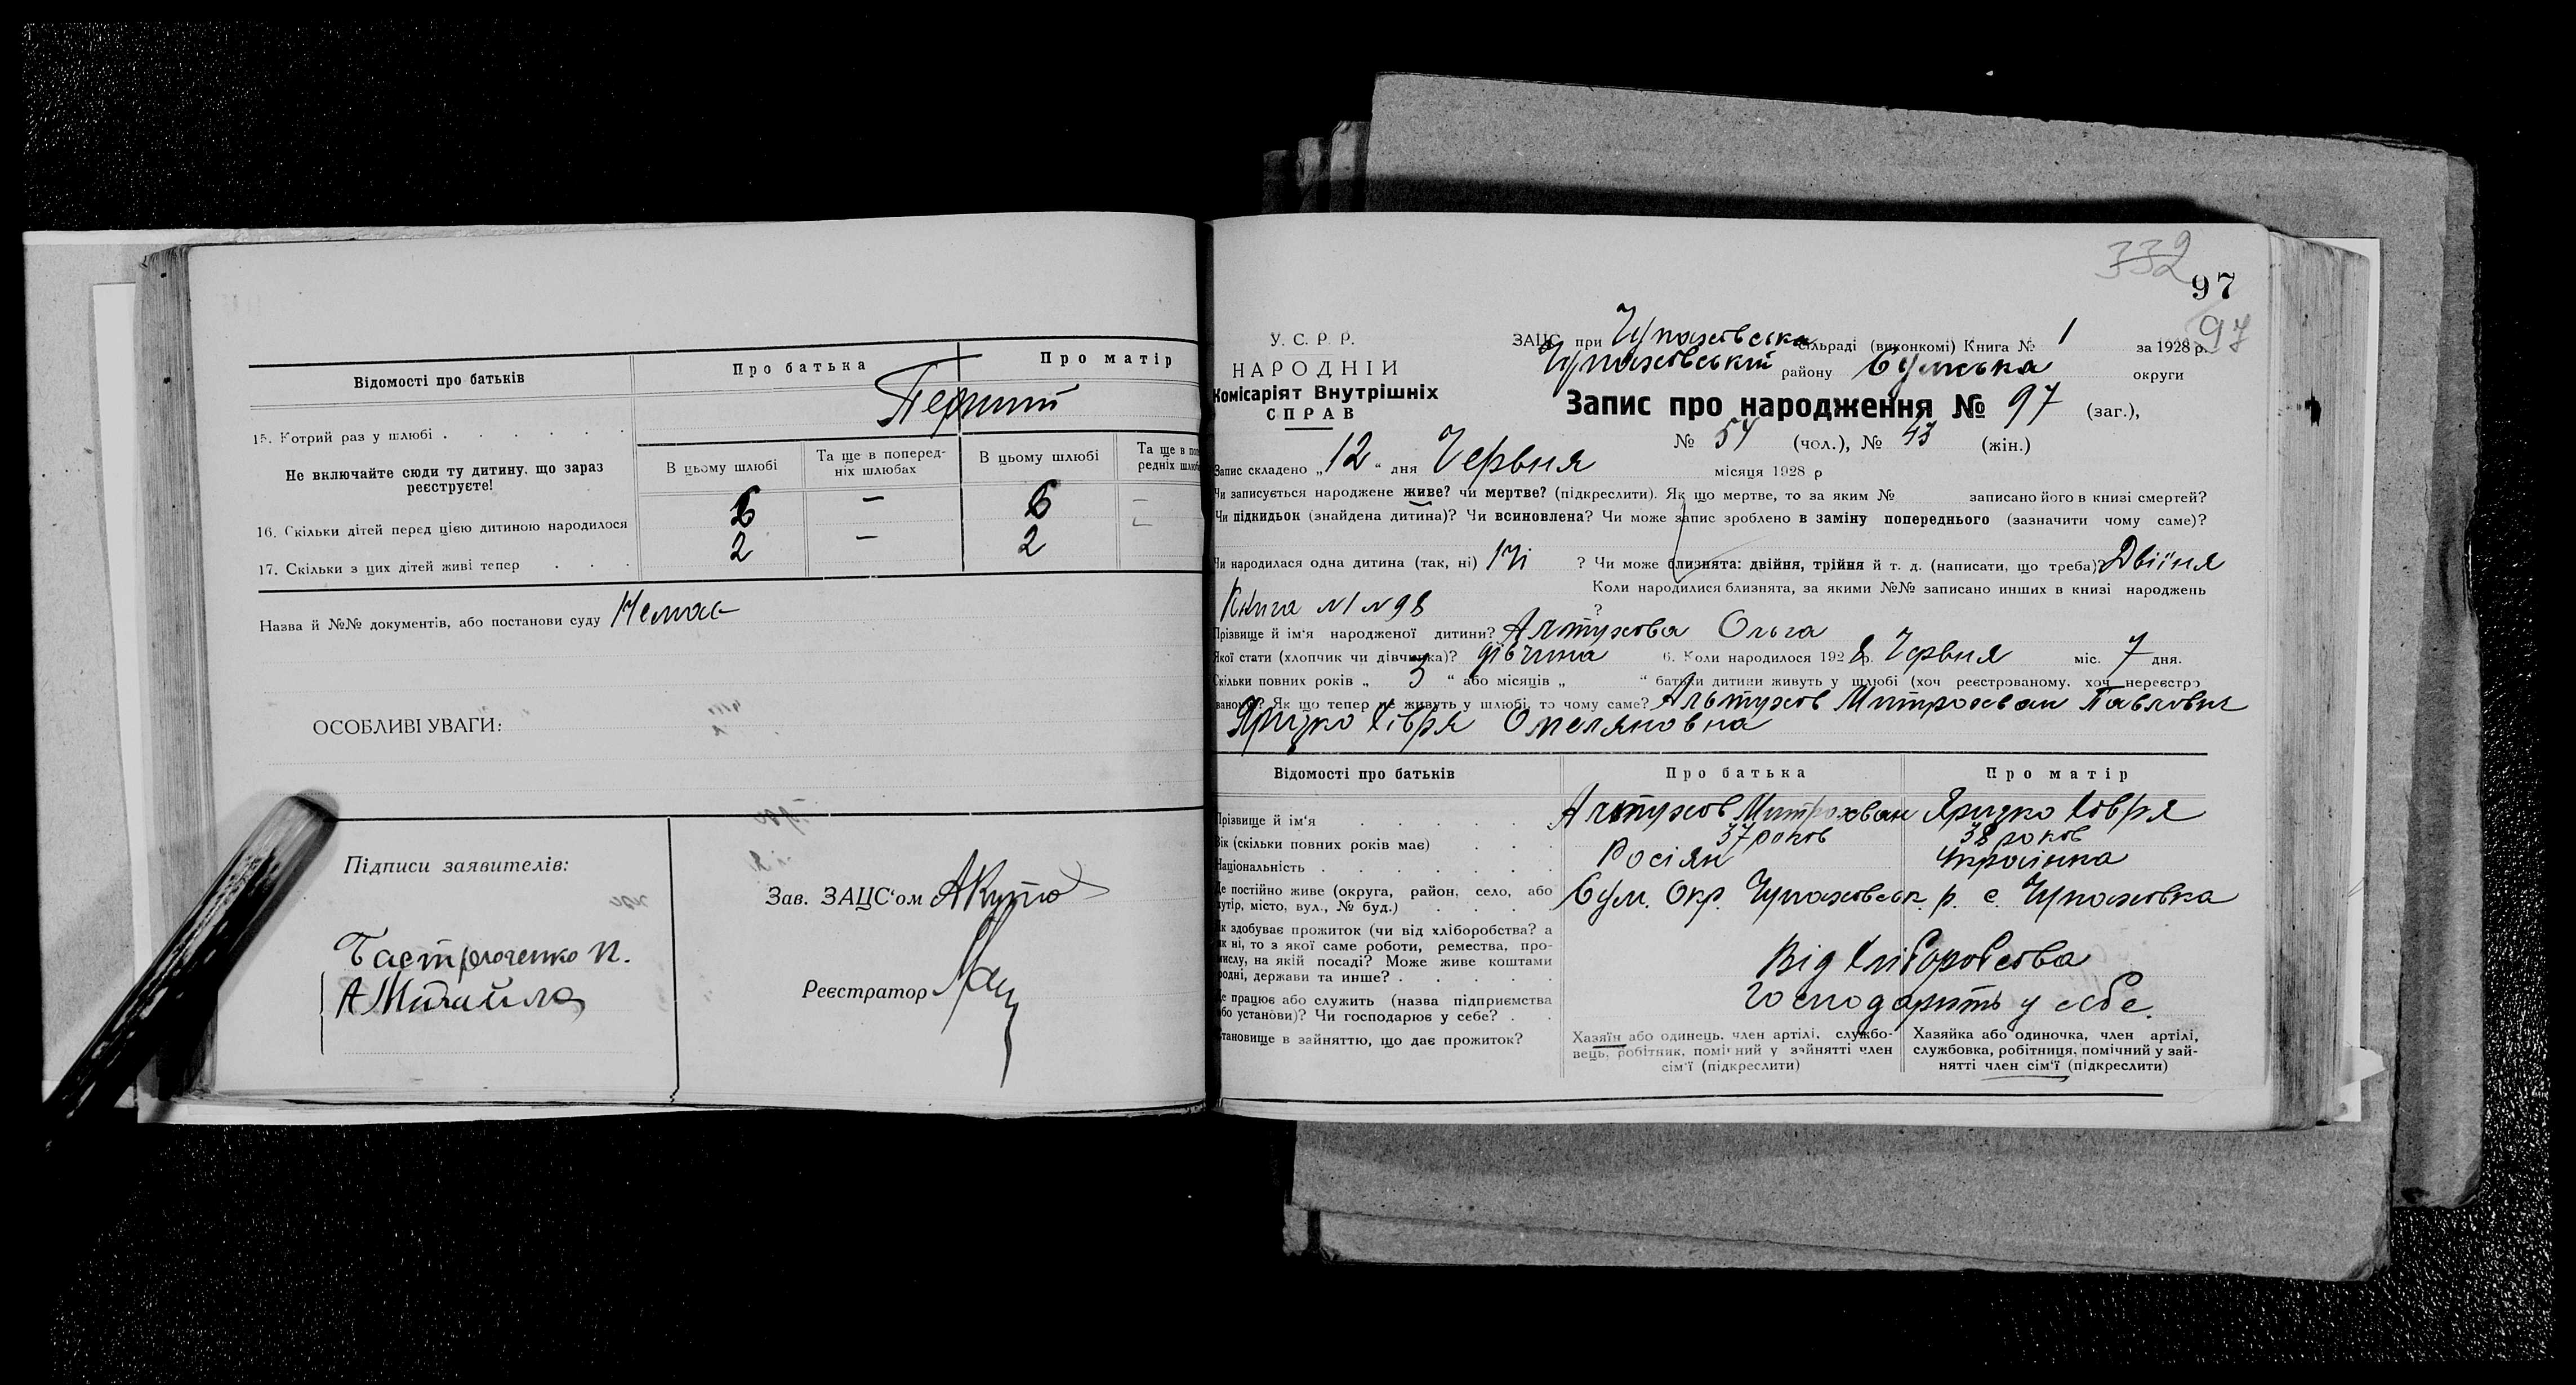 Відомості про батьків
Про батька
Про матір
15. Котрий раз у шлюбі
Перший
Не включайте сюди ту дитину, що зараз реєструєте!
В цьому шлюбі
Та ще в поперед-
ніх шлюбах
В цьому шлюбі
Та ще в по
редніх шлюб
16. Скільки дітей перед цією дитиною народилося
6 — 6 —
17. Скільки з цих дітей живі тепер
2 — 2 —
Назва й №№ документів, або постанови суду Немає
ОСОБЛИВІ УВАГИ:
Підписи заявителів:
А Михайло
Зав. ЗАЦС'ом
Реєстратор
332
97
97
У. С. Р. Р.
НАРОДНІЙ
Комісаріят Внутрішніх
СПРАВ
ЗАЦС при Чупахівська сільраді (виконкомі) Книга № 1 за 1928 р.
Чупахівський району Сумська округи
Запис про народження № 97 (заг.),
№ 54 (чол.), № 43 (жін.)
Запис складено „12“ дня Червня місяця 1928 р
Чи записується народжене живе? чи мертве? (підкреслити). Як що мертве, то за яким № записано його в книзі смертей?
Чи підкидьок (знайдена дитина)? Чи всиновлена? Чи може запис зроблено в заміну попереднього (зазначити чому саме)?
Чи народилася одна дитина (так, ні) Ні ? Чи може близнята: двійня, трійня й т. д. (написати, що треба)? Двійня
Коли народилися близнята, за якими №№ записано инших в книзі народжень
Книга №1 №98 ?
Прізвище й ім'я народженої дитини? Алтухова Ольга
Якої стати (хлопчик чи дівчинка)? дівчина 6. Коли народилося 1928 р. Червня міс. 7 дня.
Скільки повних років „ 3 “ або місяців „ “ батьки дитини живуть у шлюбі (хоч реєстрованому, хоч нереєстро
ваному? Як що тепер не живуть у шлюбі, то чому саме? Альтухов Митрохван Павлович
Яризко Хівря Омеляновна
Відомості про батьків
Про батька
Про матір
Прізвище й ім'я
Алтухов Митрохван
Яризко Ховря
Вік (скільки повних років має)
37 роков
38 роков
Національність
Росіян
Українка
Де постійно живе (округа, район, село, або
хутір, місто, вул., № буд.)
Сум. Окр. Чупаховськ. р. с. Чупаховка
Як здобуває прожиток (чи від хліборобства? а
як ні, то з якої саме роботи, ремества, про-
мислу, на якій посаді? Може живе коштами
родні, держави та инше?
Від Хліборобства
Де працює або служить (назва підприємства
або установи)? Чи господарює у себе?
Господарить у себе.
Становище в зайняттю, що дає прожиток?
Хазяїн або одинець, член артілі, службо-
вець, робітник, помічний у зайнятті член
сім'ї (підкреслити)
Хазяйка або одиночка, член артілі,
службовка, робітниця, помічний у зай-
нятті член сім'ї (підкреслити)